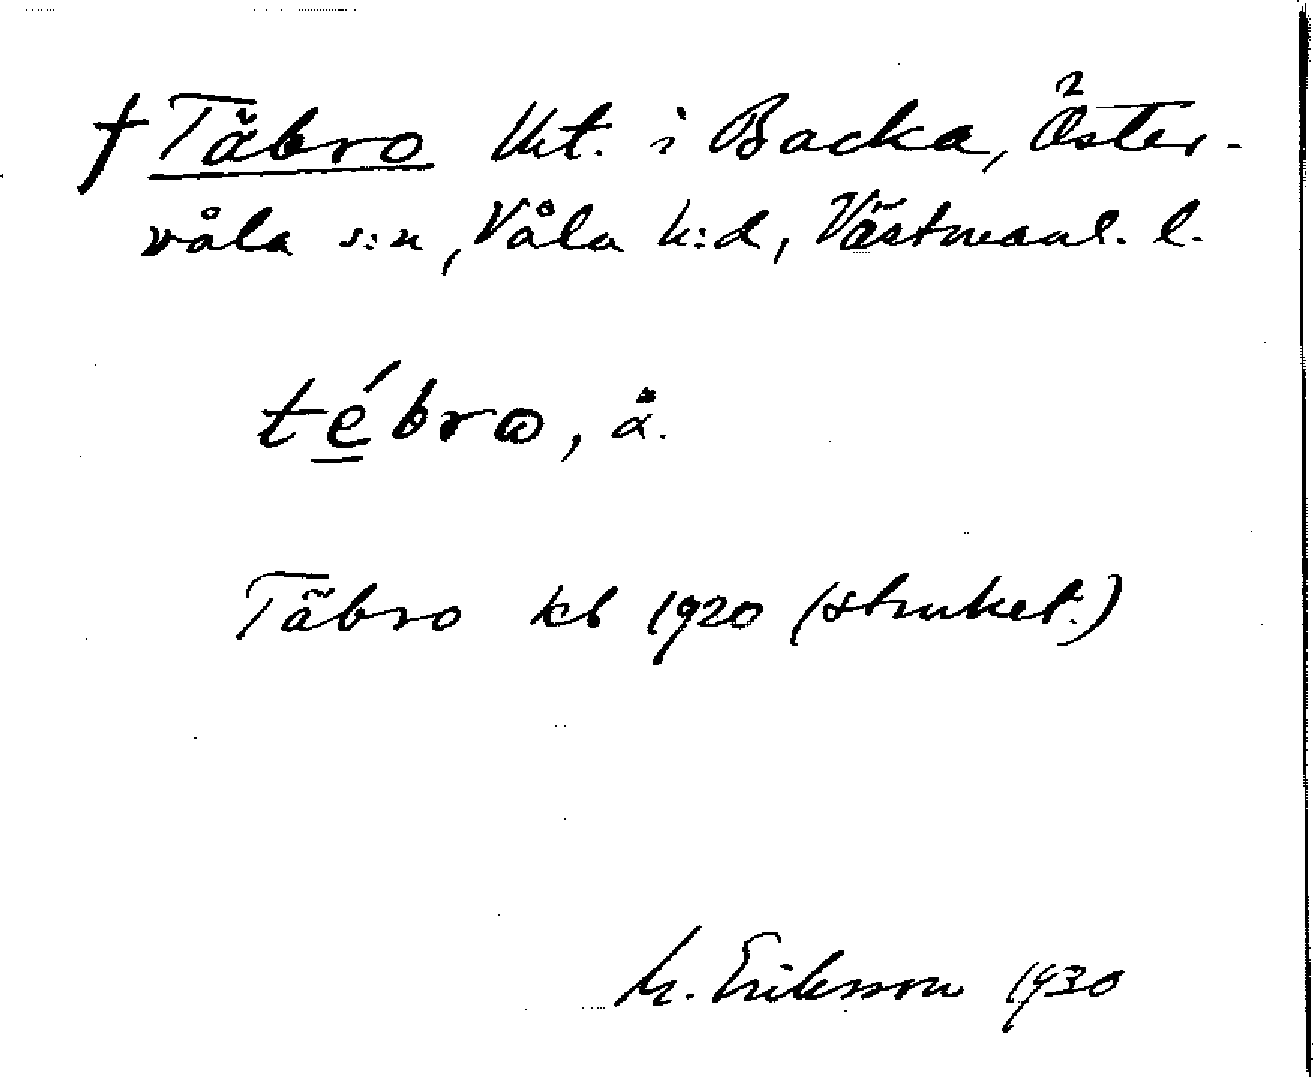 † Täbro Utt. i Backa, Öster-
våla s:n, Våla h:d, Västmanl. l.
tébro, å.
Täbro kb 1920 (struket.)
M. Eriksson 1930